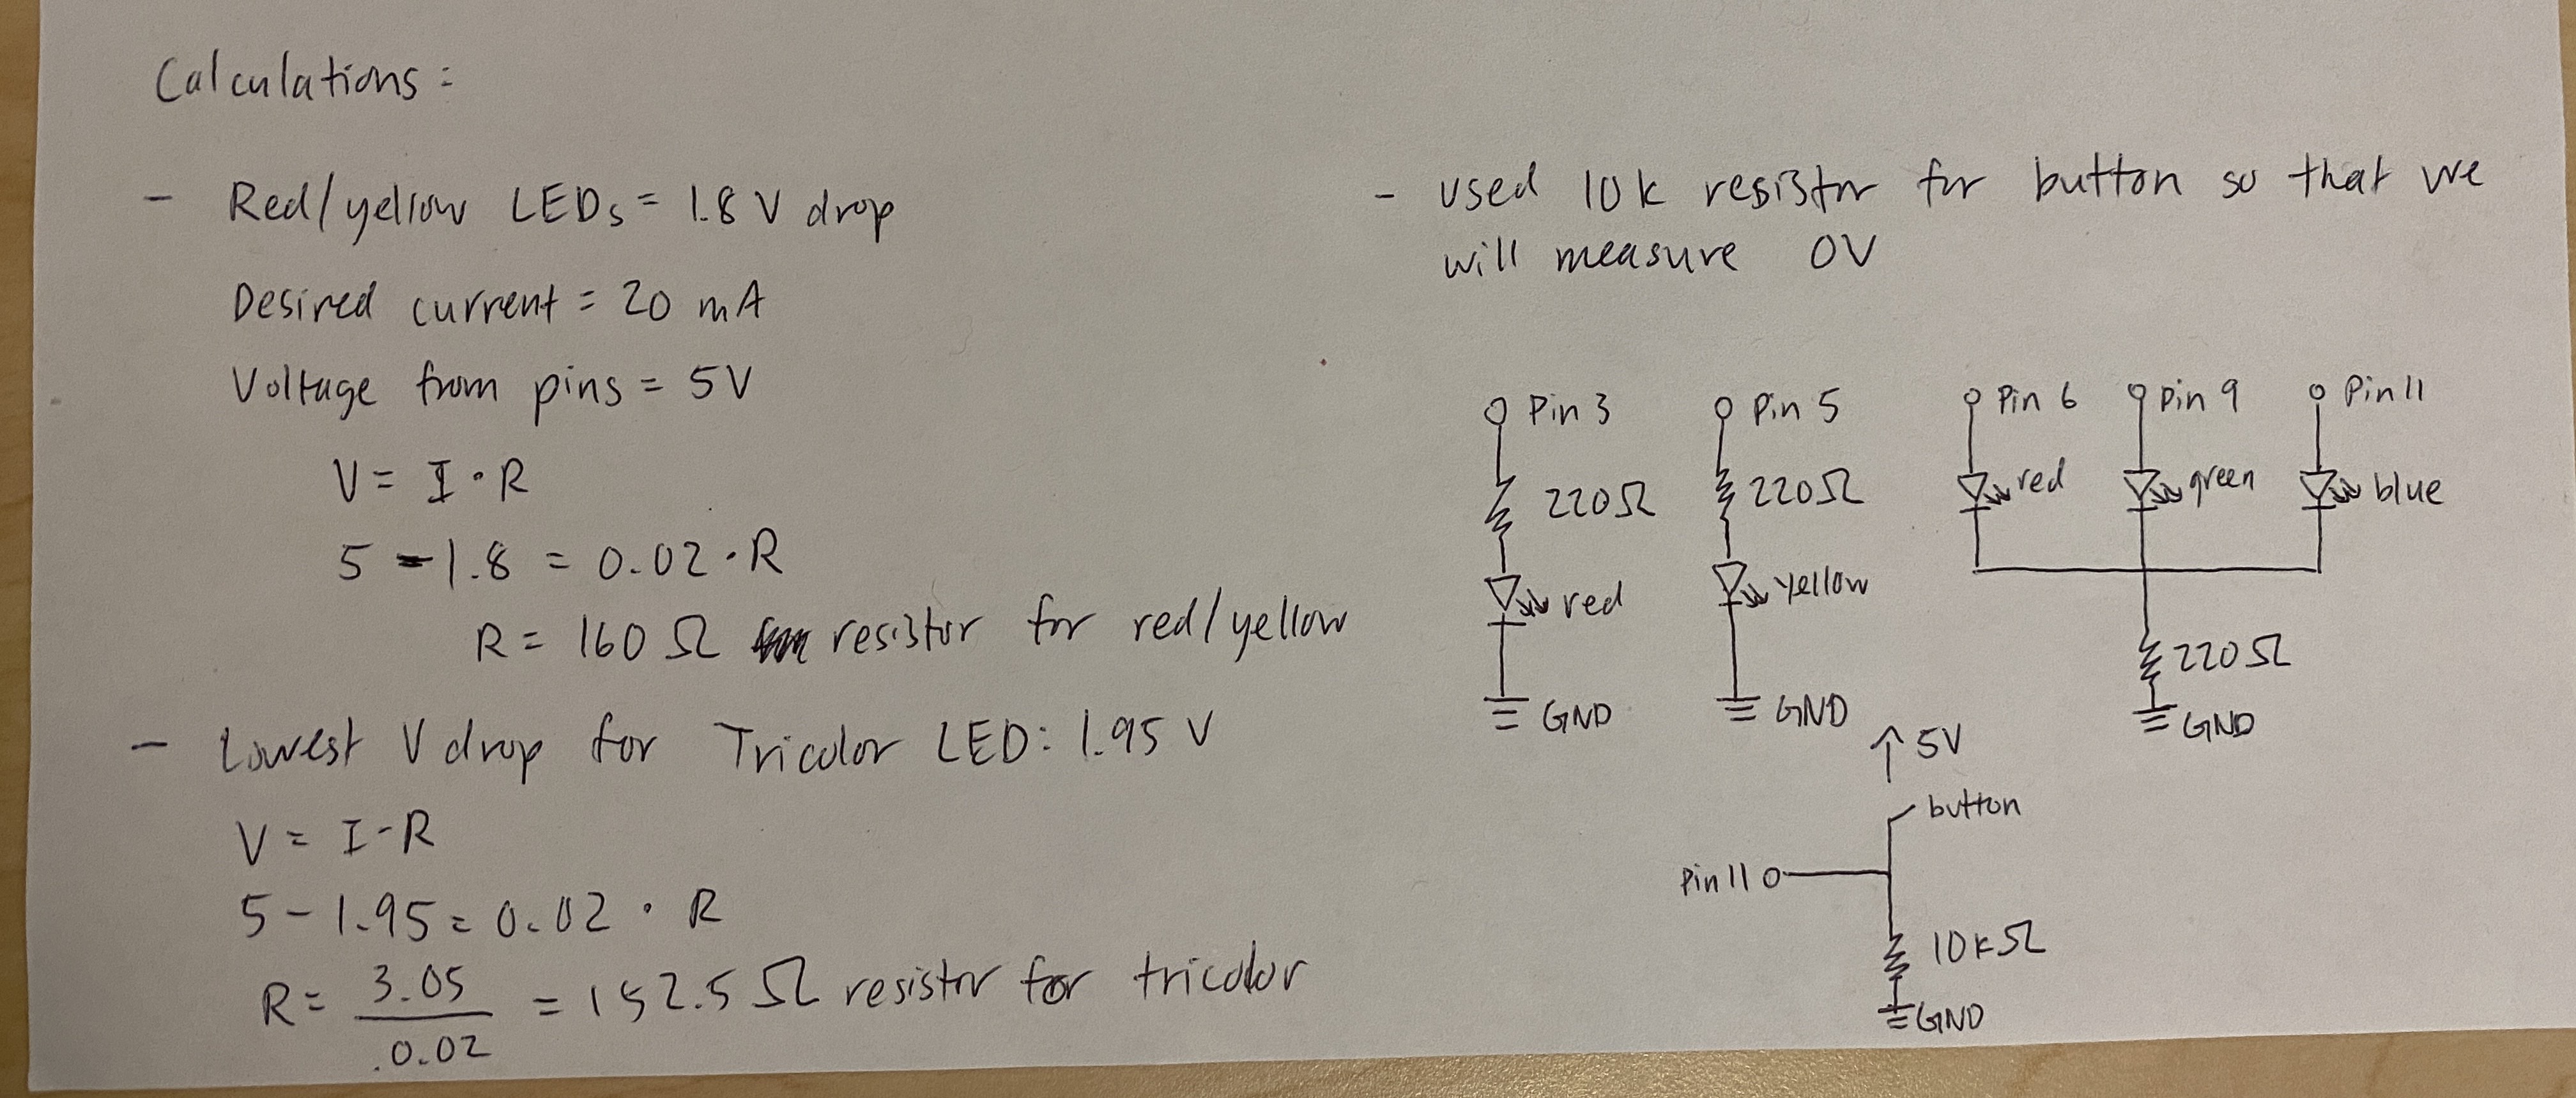 Calculations:
- Red/yellow LEDs = 1.8 V drop
Desired current = 20 mA
Voltage from pins = 5V
V = I · R
5 - 1.8 = 0.02 · R
R = 160 Ω resistor for red/yellow
- Lowest V drop for Tricolor LED: 1.95 V
V = I · R
5 - 1.95 = 0.02 · R
R = 3.05 / 0.02 = 152.5 Ω resistor for tricolor
- used 10k resistor for button so that we
will measure 0V
Pin 3
220Ω
red
GND
Pin 5
220Ω
yellow
GND
Pin 6
Pin 9
Pin 11
red
green
blue
220Ω
GND
5V
button
Pin 11
10kΩ
GND